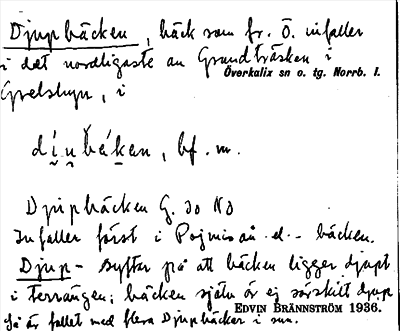 Djupbäcken, bäck som fr. Ö. infaller
i det nordligaste av Grandträsken i
Överkalix sn o. tg. Norrb. l.
Gretsbyn, i
bf. m.
Djupbäcken G. 30 NO
Infaller först i -bäcken.
Djup- syftar på att bäcken ligger djupt
i terrängen; bäcken själv är ej särskilt djup
EDVIN BRÄNNSTRÖM 1936.
Så är fallet med flera Djupbäckar i sn.